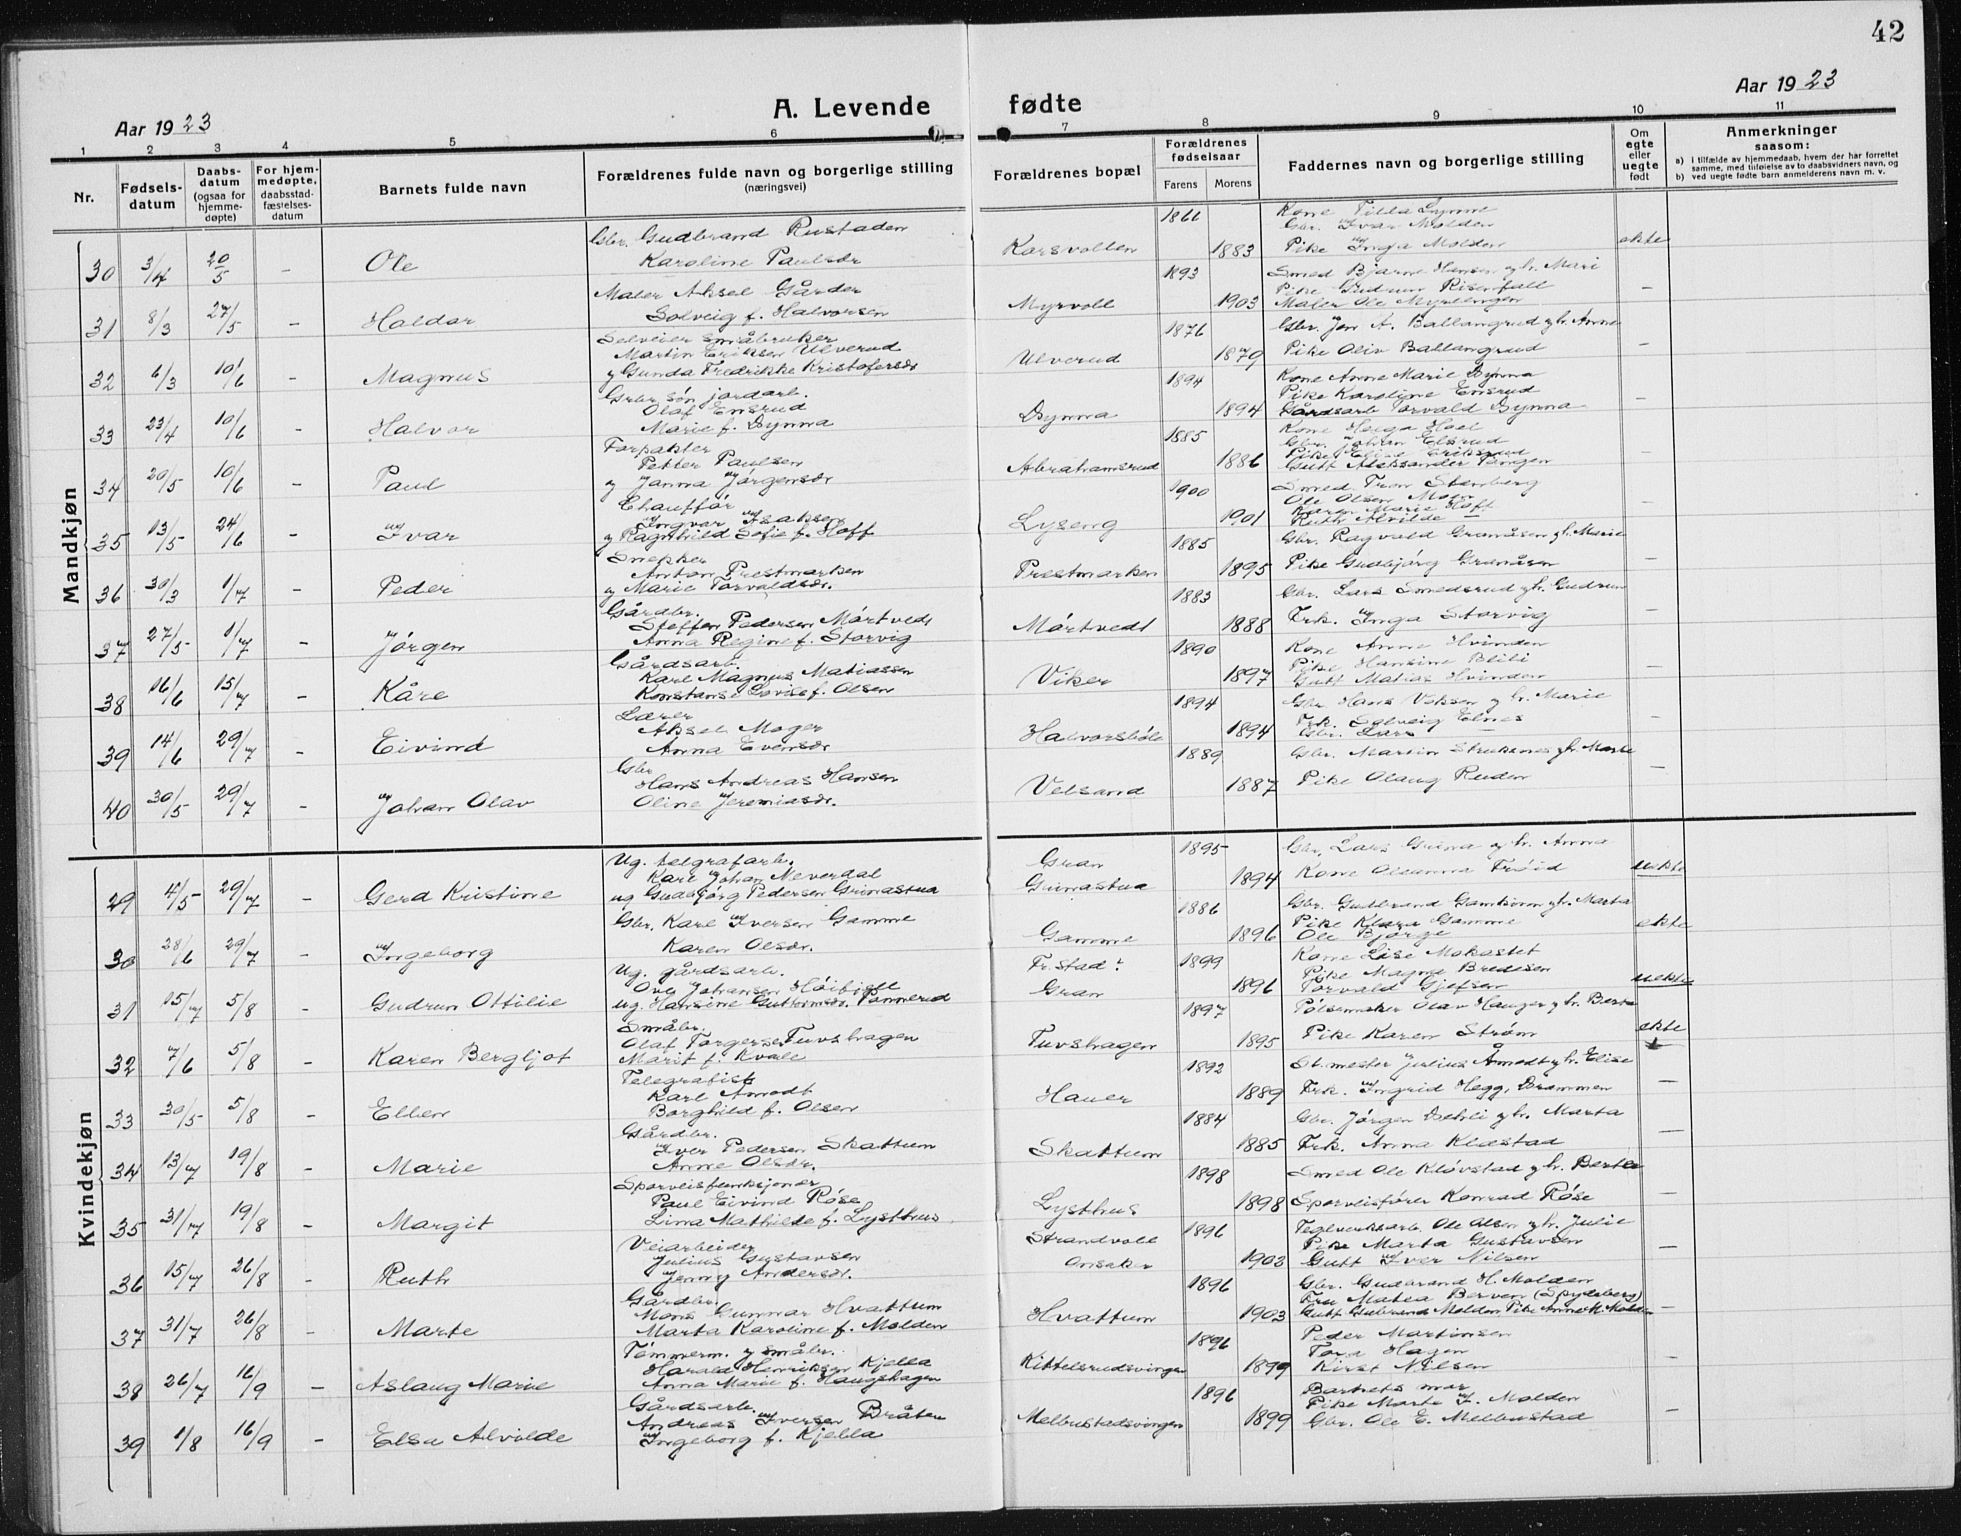 42
Aar 1923
A. Levende fødte
Aar 1923
1 2 3 4 5 6 7 8 9 10 11
Nr.
Fødsels-
datum
Daabs-
datum
(ogsaa for
hjemme-
døpte)
For hjem-
medøpte,
daabsstad-
fæstelses-
datum
Barnets fulde navn
Forældrenes fulde navn og borgerlige stilling
(næringsvei)
Forældrenes bopæl
Forældrenes
fødselsaar
Farens Morens
Faddernes navn og borgerlige stilling
Om
egte
eller
uegte
født
Anmerkninger
saasom:
a) i tilfælde av hjemmedaab, hvem der har forrettet
samme, med tilføielse av to daabsvidners navn, og
b) ved uegte fødte barn anmelderens navn m. v.
Mandkjøn
30 3/4 20/5 - Ole
Gbr. Gudbrand Rustaden
Karoline Paulsdr
Korsvollen 1866 1883
Kone Tilla Lynne
Gbr. Ivar Molden
Pike Inga Molden
ekte
31 8/3 27/5 - Haldor
Maler Aksel Gårder
Solveig f. Halvorsen
Myrvoll 1893 1903
Smed Bjarne Hansen g hr. Mari
Pike Gudrun Risenfall
Maler Ole Myrlengen
-
32 6/3 10/6 - Magnus
Selveier småbruker
Martin Eriksen Ulverud
g Gunda Fredrikke Kristofersdr
Ulverud 1876 1879
Gbr. Jon A. Ballangrud g hr. Anne
Pike Oliv Ballangrud
-
33 23/4 10/6 - Halvor
Grbr. søn jordarb.
Olaf Ensrud
Marie f. Dynna
Dynna 1894 1894
Kone Anne Marie Dynna
Pike Karoline Ensrud
Gårdsarb Torvald Dynna
-
34 20/5 10/6 - Paul
Forpakter
Petter Paulsen
g Janna Jørgensdr
Abrahamsrud 1885 1886
Kone Helga Hoel
Gbr. Johan Elsrud
Pike Eline Eriksrud
Gutt Aleksander Tangen
-
35 13/5 24/6 - Ivar
Chauffør
Ingvar Isaksen
g Ragnhild Sofie f. Hoff
Lyseng 1900 1901
Smed Tron Stenberg
Ole Olsen Moen
Karen Marie Hoff
Ruth Alvilde -
-
36 30/3 1/7 - Peder
Snekker
Anton Prestmarken
g Marie Torvaldsdr.
Prestmarken 1885 1895
Gbr. Ragvald Granåsen g hr. Marie
Pike Gudbjørg Granåsen
-
37 27/5 1/7 - Jørgen
Gårdbr.
Steffen Pedersen Mørtvedt
Anna Regine f. Storvig
Mørtvedt 1883 1888
Gbr. Lars Smedsrud g hr. Gudrun
Frk. Inga Storvig
-
38 16/6 15/7 - Kåre
Gårdsarb.
Karl Magnus Matiassen
Konstanse Lovise f. Olsen
Viker 1890 1897
Kone Anne Hvinden
Pike Hansine Blili
Gutt Matias Hvinden
-
39 14/6 29/7 - Eivind
Lærer
Aksel Moger
Anna Evensdr
Halvorsbøle 1894 1894
Gbr Hans Voksen g hr. Marie
Frk. Solveig Elnes
Gbr. Lars -
-
40 30/5 29/7 - Johan Olav
Gbr
Hans Andreas Hansen
Oline Jeremiasdr.
Velsand 1889 1887
Gbr. Martin Struksnes g hr. Marte
Pike Olaug Ruden
-
Kvindekjøn
29 4/5 29/7 - Gerd Kristine
Ug. telgrafarb.
Karl Johan Neverdal
ug Gudbjørg Pedersen Grinastua
Gran
Grinastua 1895 1894
Gbr. Lars Grina g hr. Anna
Kone Oleanna Frøid
uekte
30 28/6 29/7 - Ingeborg
Gbr. Karl Iversen Gamme
Karen Olsdr.
Gamme 1886 1896
Gbr. Gudbrand Gamkinn g hr. Marta
Pike Klara Gamme
Ole Bjørge
ekte
31 15/7 5/8 - Gudrun Ottilie
Ug. gårdsarb.
Ove Johansen Høibjelle
ug. Hansine Guttormsdr. Tømmerud
Fr.stad?
Gran 1899 1896
Kone Lise Mokastet
Pike Magna Bredesen
Torvald Gjefsen
uekte
32 7/6 5/8 - Karen Bergljot
Småbr.
Olaf Torgersen Tuvshagen
Marit f. Kvale
Tuvshagen 1897 1895
Pølsemaker Olav Hauger g hr. Berte
Pike Karen Strøm
ekte
33 30/5 5/8 - Ellen
Telegrafist
Karl Åmodt
Borghild f. Olsen
Hauer 1892 1889
St.mester Julius Åmodt g hr. Elise
Frk. Ingrid Hegg, Drammen
-
34 13/7 19/8 - Marie
Gårdbr.
Iver Pedersen Skattum
Anne Olsdr.
Skattum 1884 1885
Gbr. Jørgen Dehli g hr. Marta
Frk. Anna Klæstad
-
35 31/7 19/8 - Margit
Sporveisfunksjonær
Paul Eivind Røse
Lina Mathilde f. Lysthus
Lysthus 1898 1898
Smed Ole Kløvstad g hr. Berte
Sporveisfører Konrad Røse
-
36 15/7 26/8 - Ruth
Veiarbeider
Julius Gustavsen
Jenny Andersdr.
Strandvoll
Onsaker 1896 1902
Teglverksarb. Ole Olsen g hr. Julie
Pike Marta Gustavsen
Gutt Iver Nilsen
-
37 31/7 26/8 - Marte
Gårdbr.
Mons Gunnar Hvattum
Marta Karoline f. Molden
Hvattum 1896 1903
Gbr. Gudbrand H. Molden
Fru Matea Berven (Spydeberg)
Gutt Gudbrand Molden, Pike Anne M. Molden
-
38 26/7 16/9 - Aslaug Marie
Tømmerm. g småbr.
Harald Henriksen Kjella
Anna Marie f. Haugshagen
Kittelsrudsvingen 1896 1899
Peder Martinsen
Tora Hagen
Kirst Nilsen
39 1/8 16/9 - Elsa Alvilde
Gårdsarb.
Andreas Iversen Bråten
Ingeborg f. Kjella
Melbustadsvingen 1896 1899
Barnets mor
Pike Marte I. Molden
Gbr. Ole E. Melbustad
-